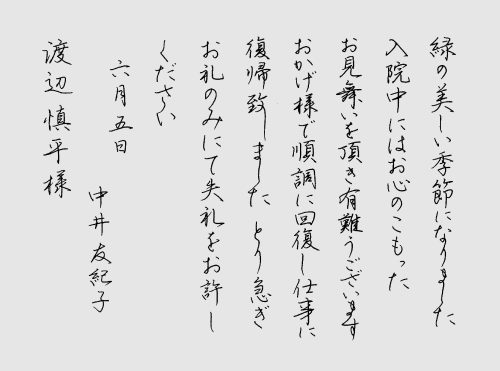 緑の美しい季節になりました
入院中にはお心のこもった
お見舞いを頂き有難うございます
おかげ様で順調に回復し仕事に
復帰致しました とり急ぎ
お礼のみにて失礼をお許し
ください
六月五日
中井友紀子
渡辺慎平様